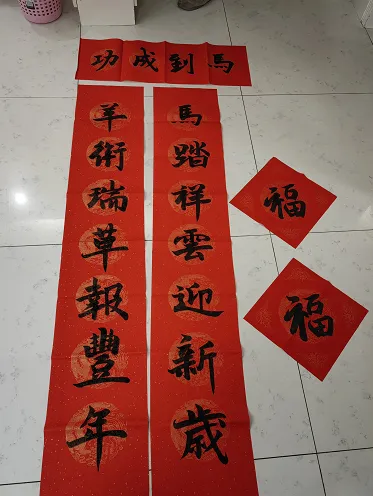 馬到成功
馬踏祥雲迎新歲
羊術瑞草報豐年
福
福